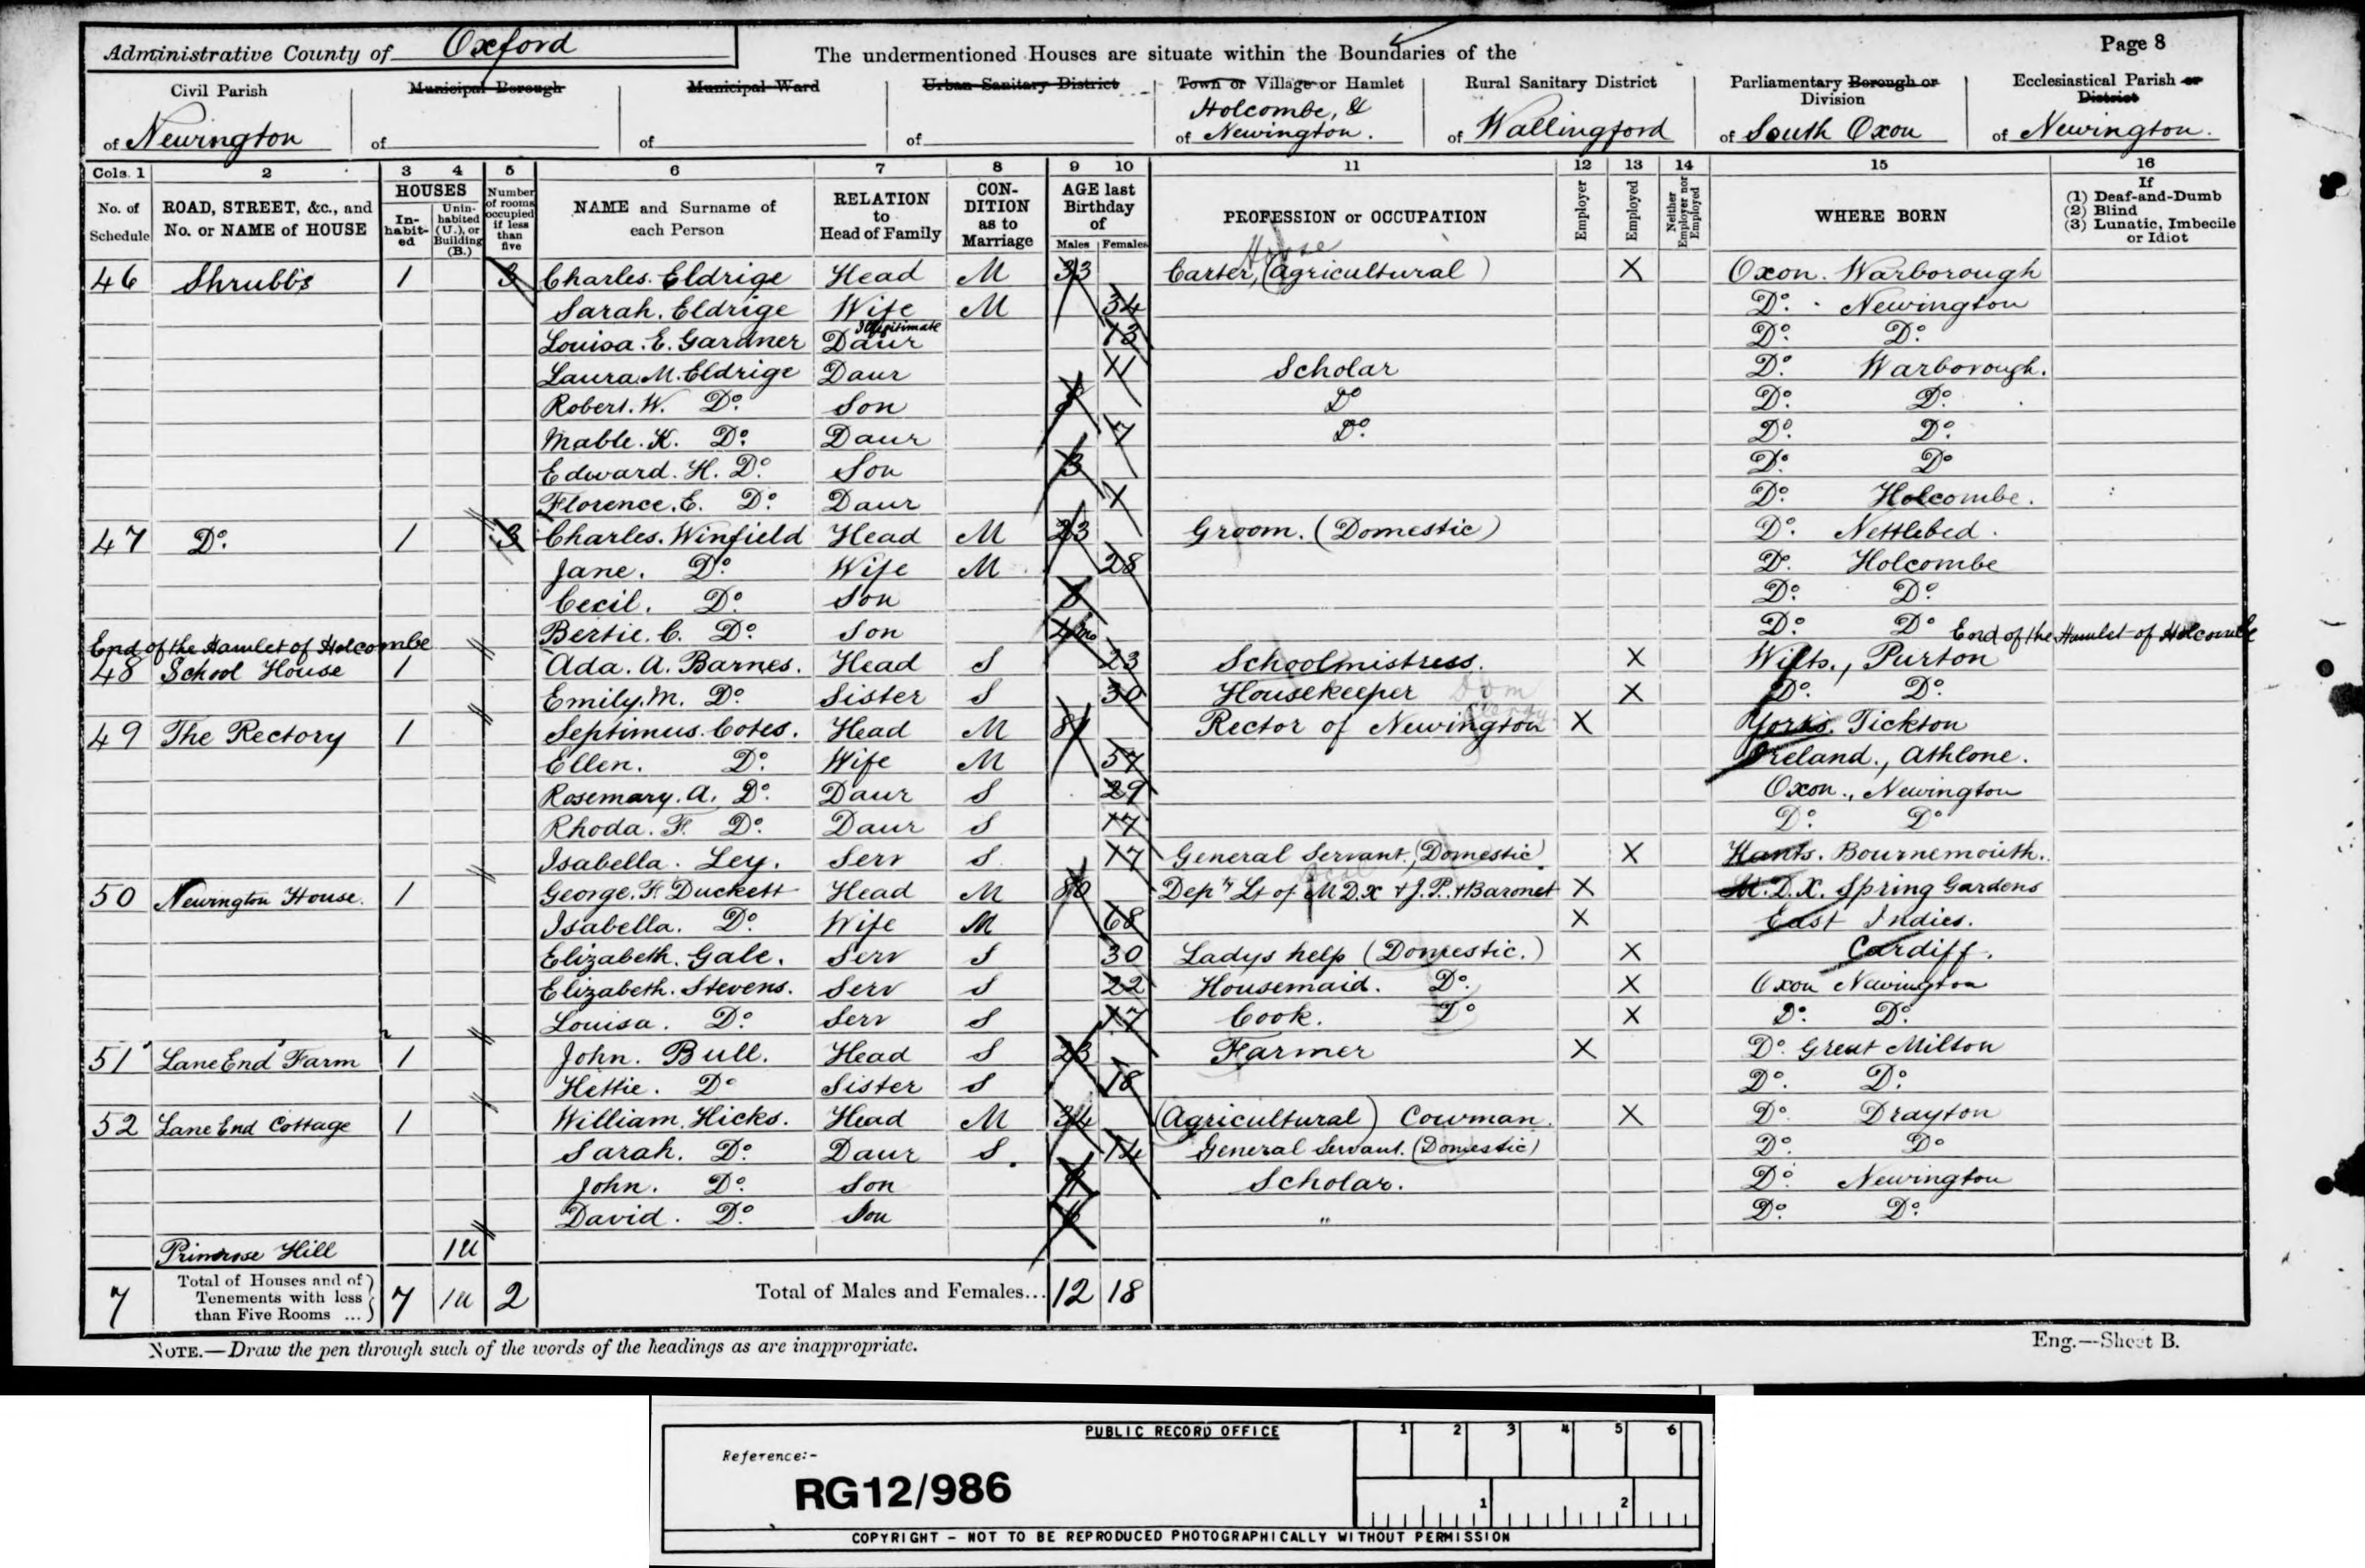 Administrative County of Oxford
The undermentioned Houses are situate within the Boundaries of the
Page 8
Civil Parish of Newington
Municipal Borough of
Municipal Ward of
Urban Sanitary District of
Town or Village or Hamlet of Holcombe, & Newington.
Rural Sanitary District of Wallingford
Parliamentary Borough or Division of South Oxon
Ecclesiastical Parish or District of Newington.
Cols. 1 2 3 4 5 6 7 8 9 10 11 12 13 14 15 16
No. of Schedule
ROAD, STREET, &c., and No. or NAME of HOUSE
HOUSES
Inhabited
Uninhabited (U.), or Building (B.)
Number of rooms occupied if less than five
NAME and Surname of each Person
RELATION to Head of Family
CONDITION as to Marriage
AGE last Birthday of
Males Females
PROFESSION or OCCUPATION
Employer
Employed
Neither Employer nor Employed
WHERE BORN
If (1) Deaf-and-Dumb (2) Blind (3) Lunatic, Imbecile or Idiot
House
46 Shrubbs 1 3 Charles. Eldrige Head M 33 Carter, (agricultural) X Oxon. Warborough
Sarah. Eldrige Wife M 34 Do. Newington
Illegitimate
Louisa. E. Gardner Daur 13 Do. Do.
Laura M. Eldrige Daur 11 Scholar Do. Warborough.
Robert. W. Do. Son Do Do. Do.
Mable. K. Do. Daur 7 Do. Do. Do.
Edward. H. Do. Son 3 Do. Do
Florence. E. Do. Daur Do. Holcombe.
47 Do. 1 3 Charles. Winfield Head M 23 Groom. (Domestic) Do. Nettlebed.
Jane. Do. Wife M 28 Do. Holcombe
Cecil. Do. Son Do. Do.
Bertie. C. Do. Son 4mo Do. Do
End of the Hamlet of Holcombe End of the Hamlet of Holcombe
48 School House 1 Ada. A. Barnes. Head S 23 Schoolmistress. X Wilts., Purton
Emily. M. Do. Sister S 30 Housekeeper Dom X Do. Do.
49 The Rectory 1 Septimus. Cotes. Head M 81 Rector of Newington X Yorks. Tickton
Ellen. Do. Wife M 57 Ireland., Athlone.
Rosemary. A. Do. Daur S 29 Oxon., Newington
Rhoda. F. Do. Daur S 17 Do. Do
Isabella. Ley. Serv S 17 General Servant. (Domestic) X Hants. Bournemouth.
50 Newington House. 1 George. F. Duckett Head M 80 Depy Lt of MDX & J.P. & Baronet X M.D.X. Spring Gardens
Isabella. Do. Wife M 68 X East Indies.
Elizabeth. Gale. Serv S 30 Ladys help (Domestic.) X Cardiff.
Elizabeth. Stevens. Serv S 22 Housemaid. Do. X Oxon Newington
Louisa. Do. Serv S 17 Cook. Do X Do. Do.
51 Lane End Farm 1 John. Bull. Head S 23 Farmer X Do. Great Milton
Hettie. Do Sister S 18 Do. Do.
52 Lane End Cottage 1 William. Hicks. Head M 34 (Agricultural) Cowman. X Do. Drayton
Sarah. Do. Daur S. 14 General Servant. (Domestic) Do. Do
John. Do. Son Scholar. Do. Newington
David. Do. Son " Do. Do.
Primrose Hill 1U
7 Total of Houses and of Tenements with less than Five Rooms ... 7 1U 2 Total of Males and Females... 12 18
NOTE.—Draw the pen through such of the words of the headings as are inappropriate.
Eng.—Sheet B.
PUBLIC RECORD OFFICE
1 2 3 4 5 6
Reference:-
RG12/986
1 2
COPYRIGHT - NOT TO BE REPRODUCED PHOTOGRAPHICALLY WITHOUT PERMISSION